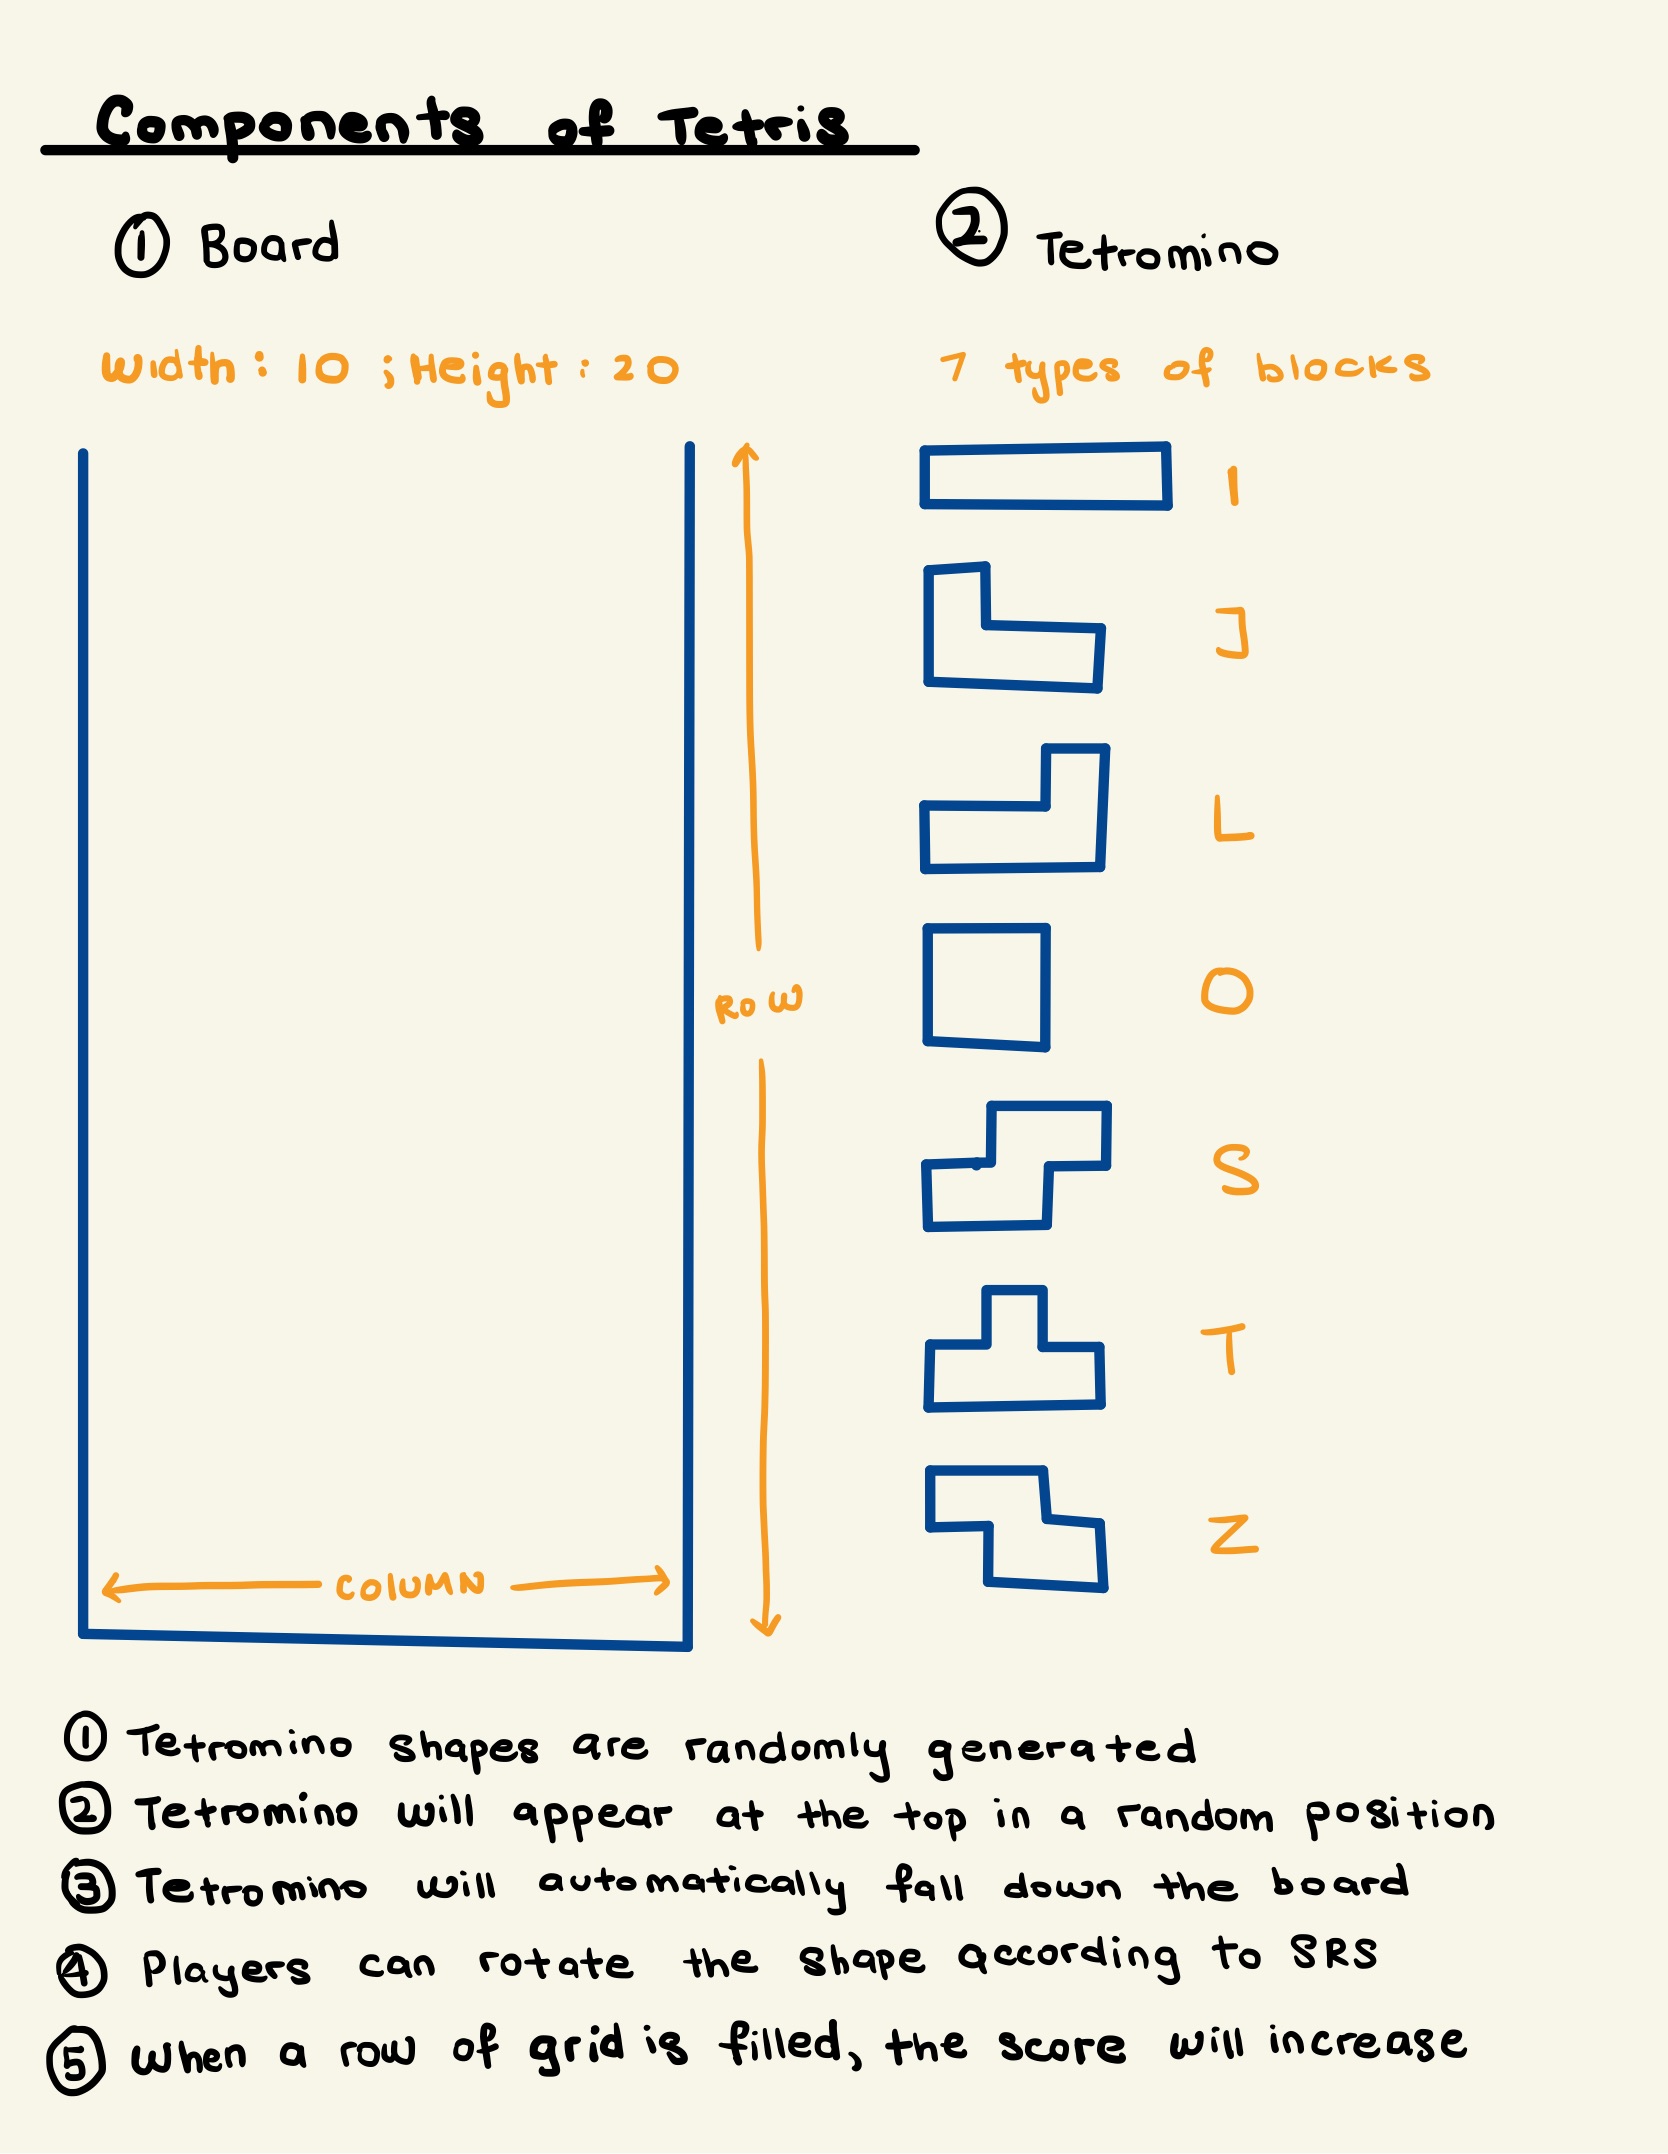 Components of Tetris
① Board
Width: 10 ; Height: 20
ROW
COLUMN
② Tetromino
7 types of blocks
I
J
L
O
S
T
Z
① Tetromino shapes are randomly generated
② Tetromino will appear at the top in a random position
③ Tetromino will automatically fall down the board
④ Players can rotate the shape according to SRS
⑤ When a row of grid is filled, the score will increase